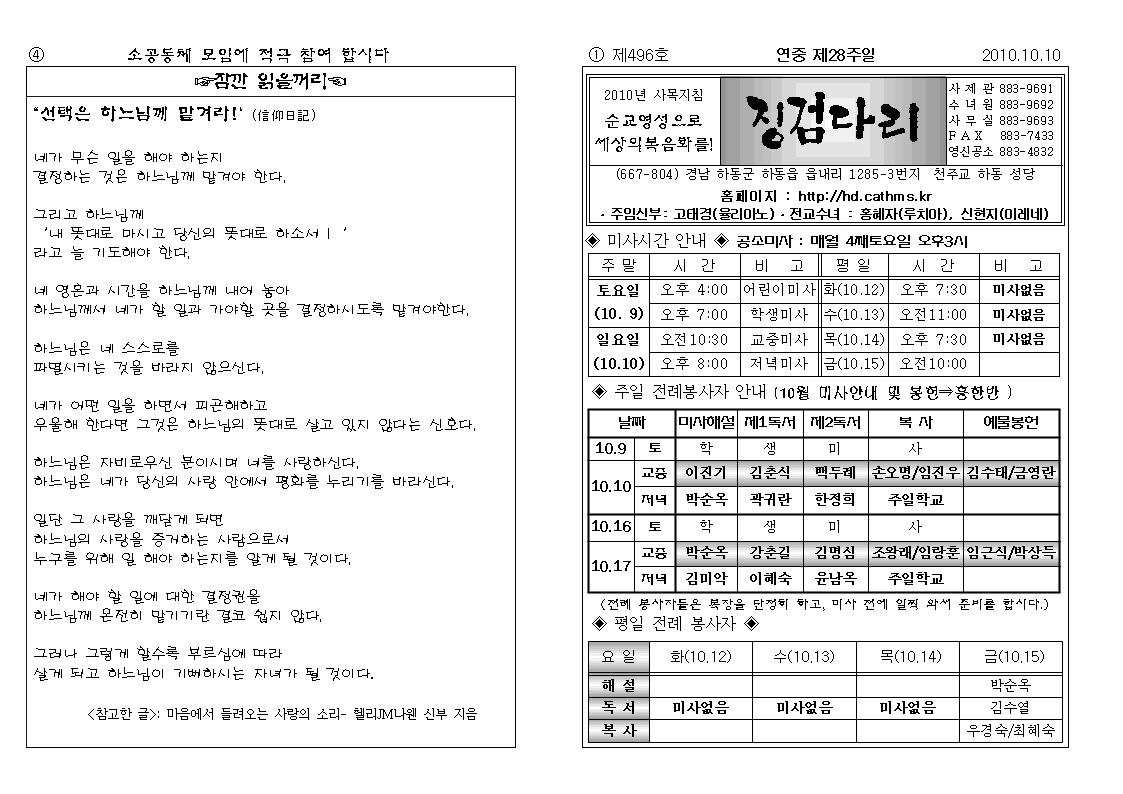 ④ 소공동체 모임에 적극 참여 합시다
☞잠깐 읽을꺼리☜
‘선택은 하느님께 맡겨라!‘ (信仰日記)
네가 무슨 일을 해야 하는지
결정하는 것은 하느님께 맡겨야 한다.
그리고 하느님께
‘내 뜻대로 마시고 당신의 뜻대로 하소서！‘
라고 늘 기도해야 한다.
네 영혼과 시간을 하느님께 내어 놓아
하느님께서 네가 할 일과 가야할 곳을 결정하시도록 맡겨야한다.
하느님은 네 스스로를
파멸시키는 것을 바라지 않으신다.
네가 어떤 일을 하면서 피곤해하고
우울해 한다면 그것은 하느님의 뜻대로 살고 있지 않다는 신호다.
하느님은 자비로우신 분이시며 너를 사랑하신다.
하느님은 네가 당신의 사랑 안에서 평화를 누리기를 바라신다.
일단 그 사랑을 깨닫게 되면
하느님의 사랑을 증거하는 사람으로서
누구를 위해 일 해야 하는지를 알게 될 것이다.
네가 해야 할 일에 대한 결정권을
하느님께 온전히 맡기기란 결코 쉽지 않다.
그러나 그렇게 할수록 부르심에 따라
살게 되고 하느님이 기뻐하시는 자녀가 될 것이다.
<참고한 글>: 마음에서 들려오는 사랑의 소리- 헨리JM나웬 신부 지음
① 제496호 연중 제28주일 2010.10.10
2010년 사목지침
순교영성으로
세상의복음화를!
징검다리
사 제 관 883-9691
수 녀 원 883-9692
사 무 실 883-9693
F A X 883-7433
영신공소 883-4832
(667-804) 경남 하동군 하동읍 읍내리 1285-3번지 천주교 하동 성당
홈페이지 : http://hd.cathms.kr
· 주임신부: 고태경(율리아노) · 전교수녀 : 홍혜자(루치아), 신현지(이레네)
◈ 미사시간 안내 ◈ 공소미사 : 매월 4째토요일 오후3시
주 말 시 간 비 고 평 일 시 간 비 고
토요일 오후 4:00 어린이미사 화(10.12) 오후 7:30 미사없음
(10. 9) 오후 7:00 학생미사 수(10.13) 오전11:00 미사없음
일요일 오전10:30 교중미사 목(10.14) 오후 7:30 미사없음
(10.10) 오후 8:00 저녁미사 금(10.15) 오전10:00
◈ 주일 전례봉사자 안내 (10월 미사안내 및 봉헌⇒홍한방 )
날짜 미사해설 제1독서 제2독서 복 사 예물봉헌
10.9 토 학 생 미 사
10.10 교중 이진기 김춘식 백두례 손오명/임진우 김수태/금영란
저녁 박순옥 곽귀란 한정희 주일학교
10.16 토 학 생 미 사
10.17 교중 박순옥 강춘길 김명심 조왕래/임랑훈 임근식/박상득
저녁 김미악 이혜숙 윤남옥 주일학교
(전례 봉사자들은 복장을 단정히 하고, 미사 전에 일찍 와서 준비를 합시다.)
◈ 평일 전례 봉사자 ◈
요 일 화(10.12) 수(10.13) 목(10.14) 금(10.15)
해 설 박순옥
독 서 미사없음 미사없음 미사없음 김수열
복 사 우경숙/최혜숙